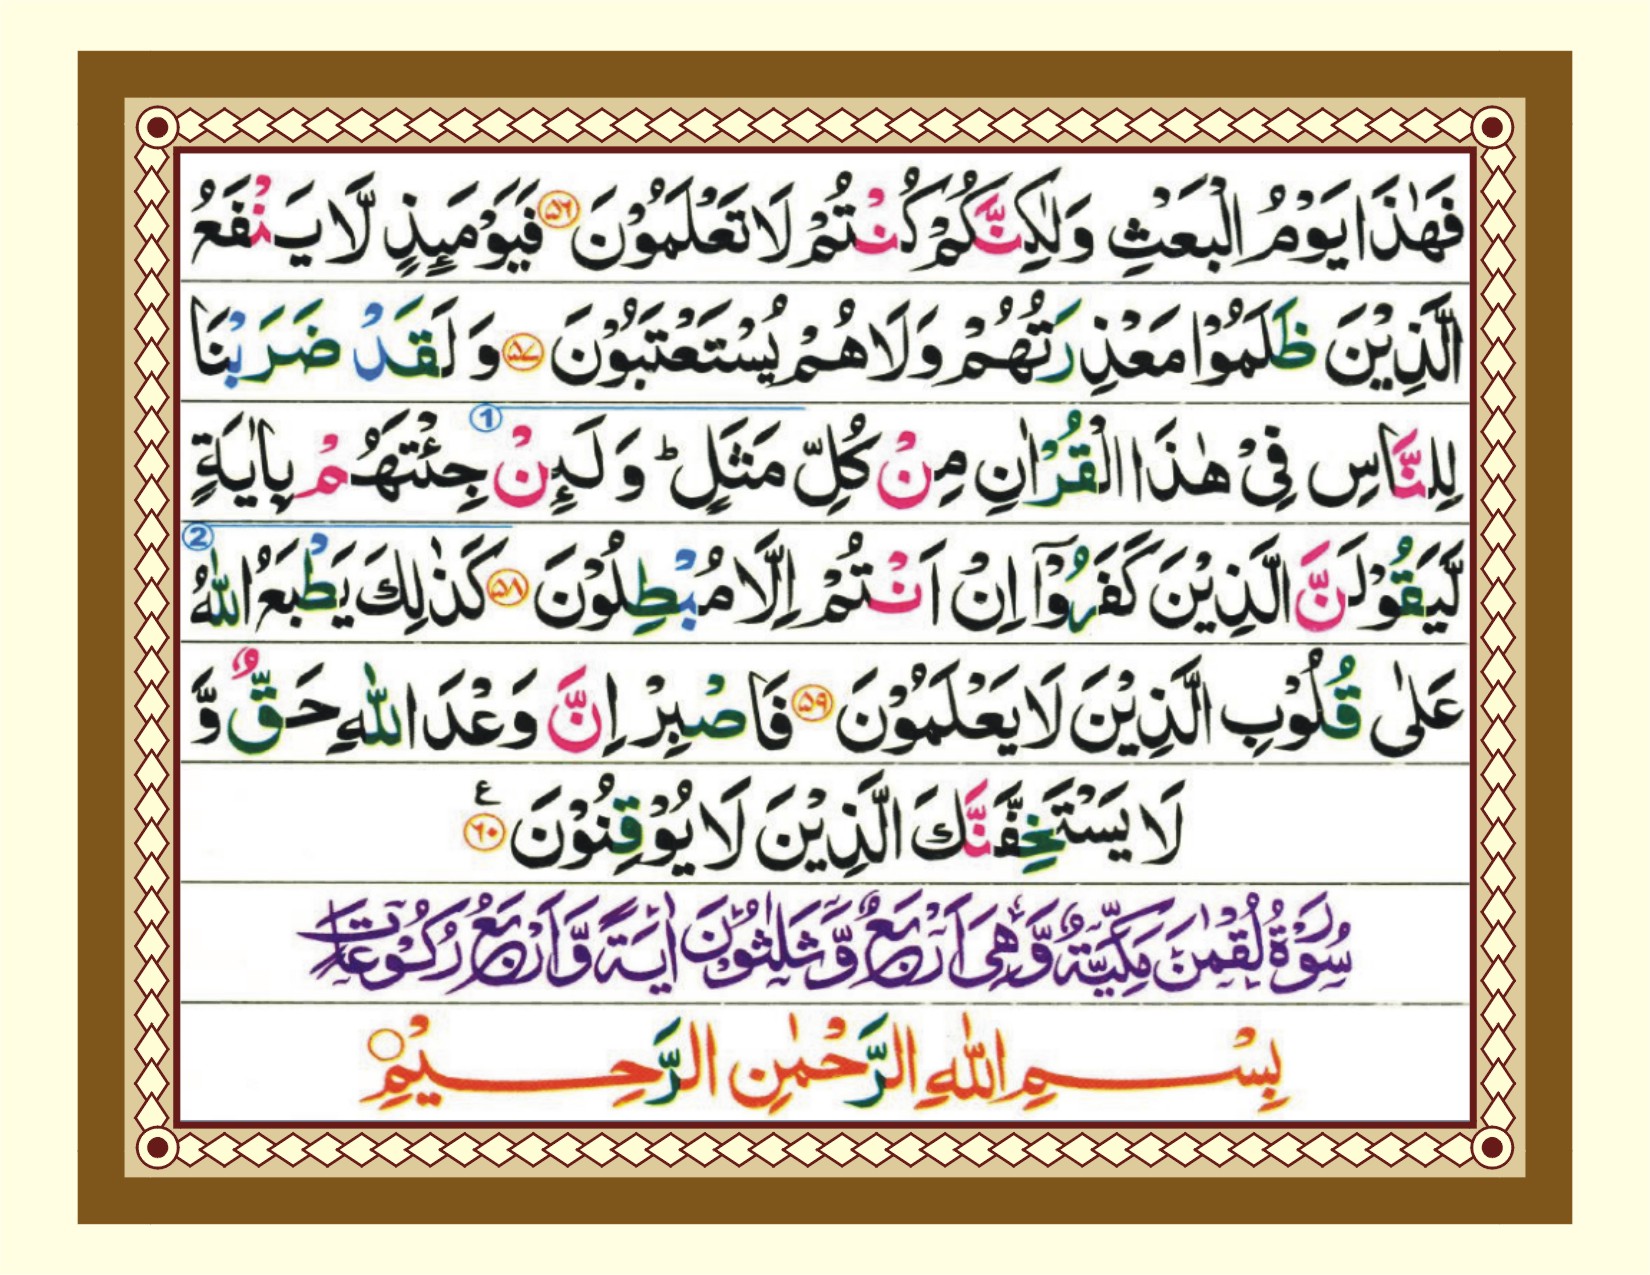 فَهٰذَا يَوْمُ الْبَعْثِ وَلٰكِنَّكُمْ كُنْتُمْ لَا تَعْلَمُوْنَ ﴿۵۶﴾ فَيَوْمَئِذٍ لَّا يَنْفَعُ
الَّذِيْنَ ظَلَمُوْا مَعْذِرَتُهُمْ وَلَا هُمْ يُسْتَعْتَبُوْنَ ﴿۵۷﴾ وَلَقَدْ ضَرَبْنَا
لِلنَّاسِ فِىْ هٰذَا الْقُرْاٰنِ مِنْ كُلِّ مَثَلٍ ؕ وَلَئِنْ ① جِئْتَهُمْ بِاٰيَةٍ
لَّيَقُوْلَنَّ الَّذِيْنَ كَفَرُوْۤا اِنْ اَنْتُمْ اِلَّا مُبْطِلُوْنَ ﴿۵۸﴾ كَذٰلِكَ يَطْبَعُ اللّٰهُ ②
عَلٰى قُلُوْبِ الَّذِيْنَ لَا يَعْلَمُوْنَ ﴿۵۹﴾ فَاصْبِرْ اِنَّ وَعْدَ اللّٰهِ حَقٌّ وَّ
لَا يَسْتَخِفَّنَّكَ الَّذِيْنَ لَا يُوْقِنُوْنَ ﴿۶۰﴾ ع
سُوْرَةُ لُقْمٰنَ مَكِّيَّةٌ وَّهِىَ اَرْبَعٌ وَّثَلٰثُوْنَ اٰيَةً وَّاَرْبَعُ رُكُوْعَاتٍ
بِسْمِ اللّٰهِ الرَّحْمٰنِ الرَّحِيْمِ